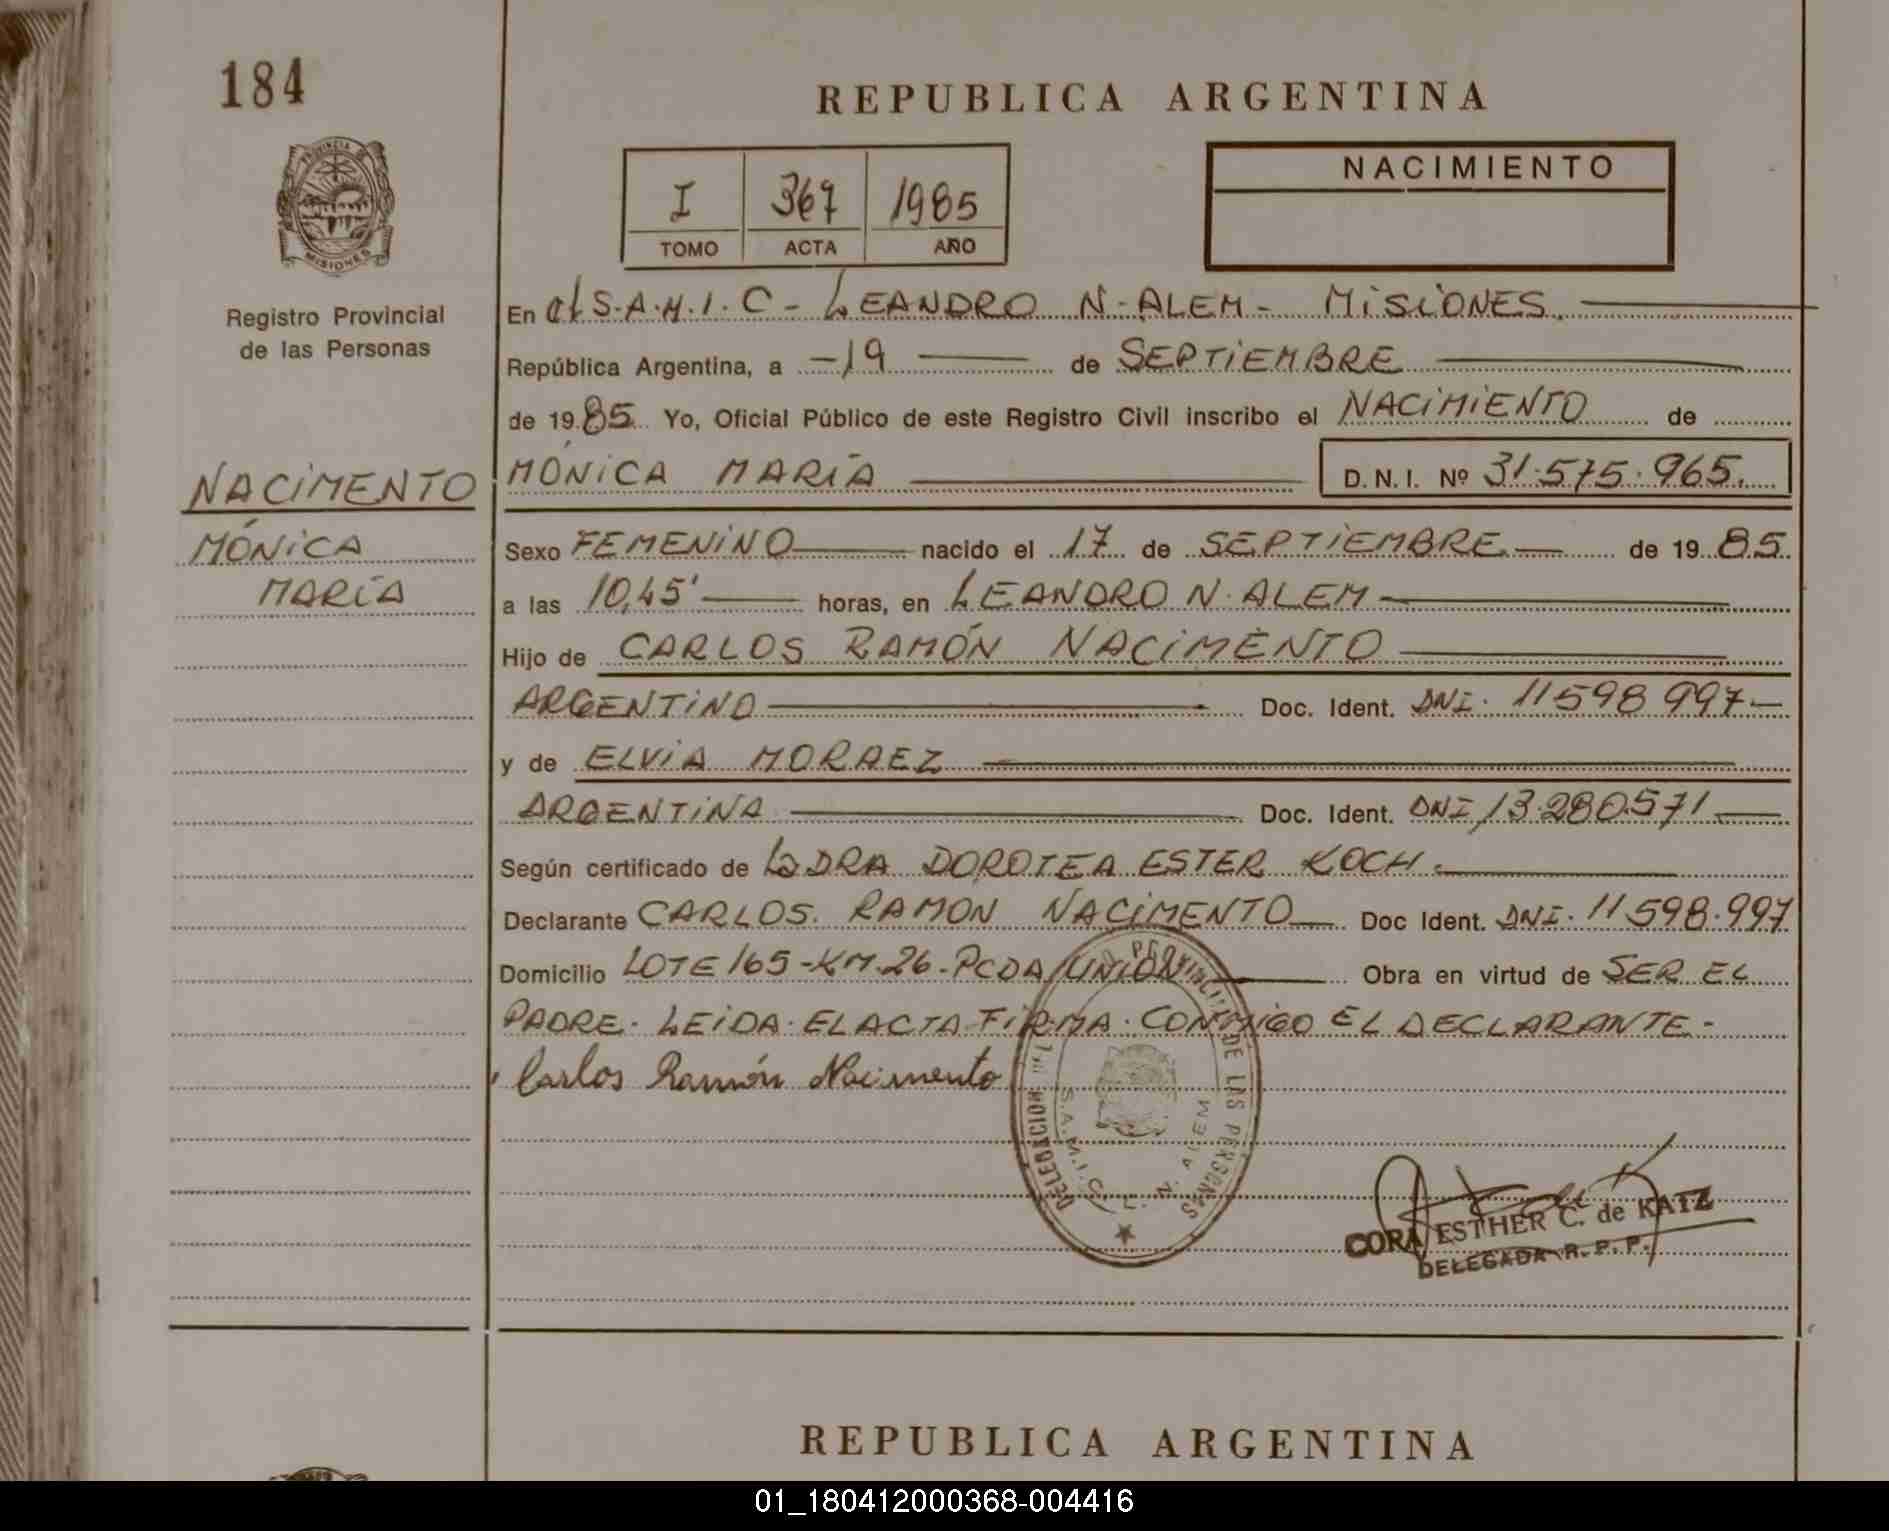 184
REPUBLICA ARGENTINA
PROVINCIA DE
MISIONES
Registro Provincial
de las Personas
I 367 1985
TOMO ACTA AÑO
NACIMIENTO
En el S.A.M.I.C - LEANDRO N. ALEM - MISIONES.
República Argentina, a -19 de SEPTIEMBRE
de 1985. Yo, Oficial Público de este Registro Civil inscribo el NACIMIENTO de
NACIMENTO
MÓNICA
MARÍA
MÓNICA MARÍA D.N.I. Nº 31.575.965.
Sexo FEMENINO nacido el 17 de SEPTIEMBRE de 1985.
a las 10,45' horas, en LEANDRO N. ALEM
Hijo de CARLOS RAMÓN NACIMENTO
ARGENTINO Doc. Ident. DNI. 11598997
y de ELVIA MORAEZ
ARGENTINA Doc. Ident. DNI 13.280.571
Según certificado de LA DRA DOROTEA ESTER KOCH.
Declarante CARLOS. RAMON NACIMENTO Doc Ident. DNI. 11598.997
Domicilio LOTE 165-KM.26-PCDA UNION Obra en virtud de SER EL
PADRE. LEIDA. EL ACTA FIRMA. CONMIGO EL DECLARANTE-
Carlos Ramón Nacimento
DELEGACION PROVINCIAL DE LAS PERSONAS
S.A.M.I.C. L. N. ALEM
CORA ESTHER C. de KATZ
DELEGADA R. P. P.
REPUBLICA ARGENTINA
01_180412000368-004416